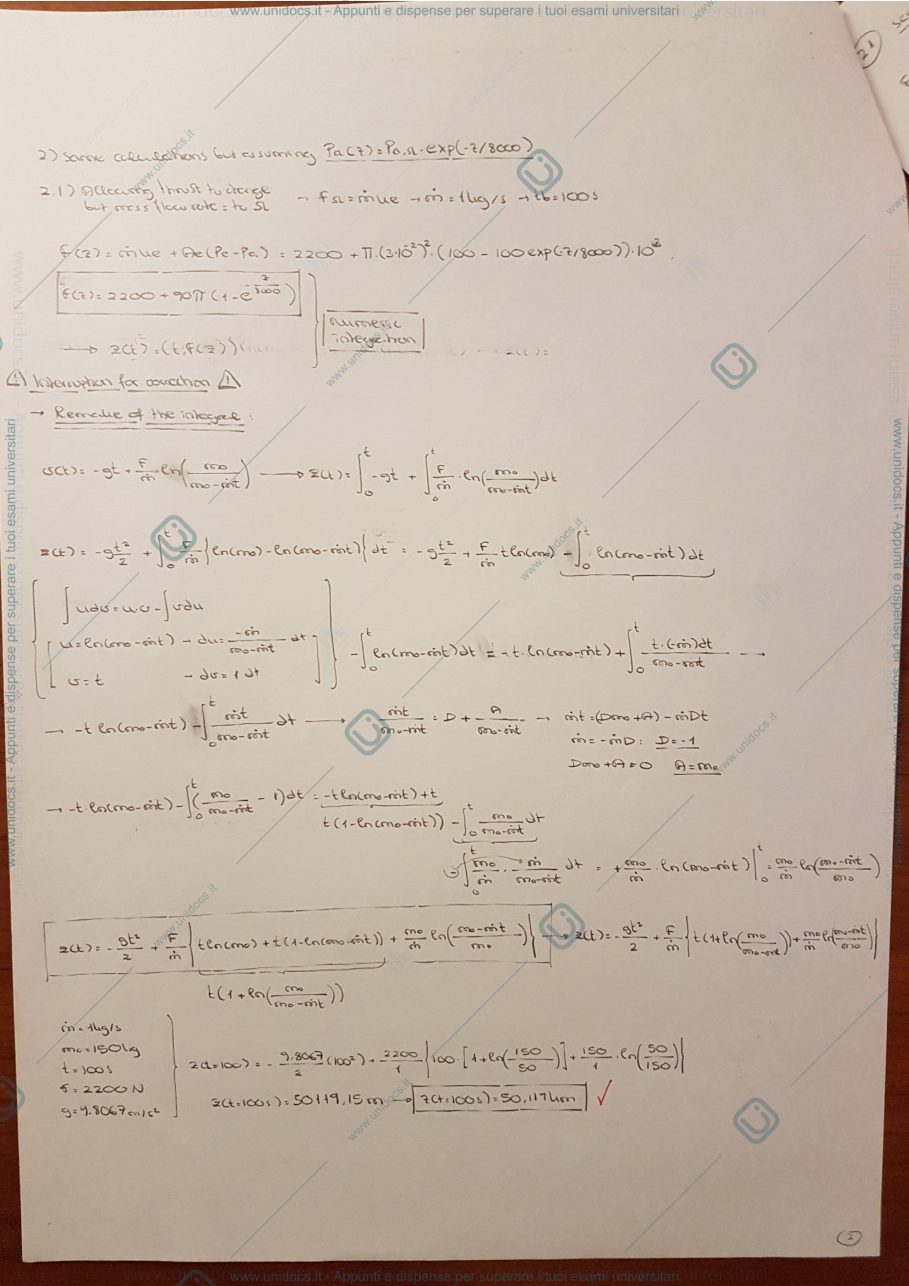 www.unidocs.it - Appunti e dispense per superare i tuoi esami universitari
21
2) Same calculations but assuming Pa(z)=Pa,SL·exp(-z/8000)
2.1) Allowing thrust to change → F SL=ṁue → ṁ=1kg/s → tb=100s
but mass flow rate = to SL
F(z)=ṁue + Ae(Pe-Pa) = 2200 + π·(3·10⁻²)²·(100 - 100exp(-z/8000))·10³
F(z)=2200+90π(1-e^(-z/8000))
numeric
integration
→ z(t)=(t,F(z))
⚠ Interruption for correction ⚠
→ Remake of the integral:
v(t)=-gt+F/ṁ ln(m₀/(m₀-ṁt)) → z(t)=∫₀ᵗ -gt + ∫₀ᵗ F/ṁ·ln(m₀/(m₀-ṁt))dt
z(t)=-g t²/2 + ∫₀ᵗ F/ṁ{ln(m₀)-ln(m₀-ṁt)}dt = -g t²/2 + F/ṁ t ln(m₀) -∫₀ᵗ ln(m₀-ṁt)dt
∫udv=uv-∫vdu
u=ln(m₀-ṁt) → du=-ṁ/(m₀-ṁt) dt
v=t → dv=1dt
-∫₀ᵗ ln(m₀-ṁt)dt = -t·ln(m₀-ṁt)+∫₀ᵗ t·(-ṁ)dt/(m₀-ṁt) →
→ -t ln(m₀-ṁt) -∫₀ᵗ ṁt/(m₀-ṁt) dt → ṁt/(m₀-ṁt) = D + A/(m₀-ṁt) → ṁt=(Dm₀+A)-ṁDt
ṁ=-ṁD: D=-1
Dm₀+A=0 A=m₀
→ -t·ln(m₀-ṁt)-∫₀ᵗ(m₀/(m₀-ṁt) - 1)dt = -t ln(m₀-ṁt)+t
t(1-ln(m₀-ṁt)) -∫₀ᵗ m₀/(m₀-ṁt) dt
-∫₀ᵗ m₀/ṁ · ṁ/(m₀-ṁt) dt = +m₀/ṁ·ln(m₀-ṁt)|₀ᵗ = m₀/ṁ ln((m₀-ṁt)/m₀)
z(t)=-gt²/2 + F/ṁ{t ln(m₀)+t(1-ln(m₀-ṁt))+m₀/ṁ ln((m₀-ṁt)/m₀)} → z(t)=-gt²/2 + F/ṁ{t(1+ln(m₀/(m₀-ṁt)))+m₀/ṁ ln((m₀-ṁt)/m₀)}
t(1+ln(m₀/(m₀-ṁt)))
ṁ=1kg/s
m₀=150kg
t=100s
F=2200N
g=9.8067m/s²
z(t=100)=-9.8067/2 (100²)+2200/1{100·[1+ln(150/50)]+150/1·ln(50/150)}
z(t=100s)=50119,15m → z(t=100s)=50,119km ✓
2
www.unidocs.it - Appunti e dispense per superare i tuoi esami universitari